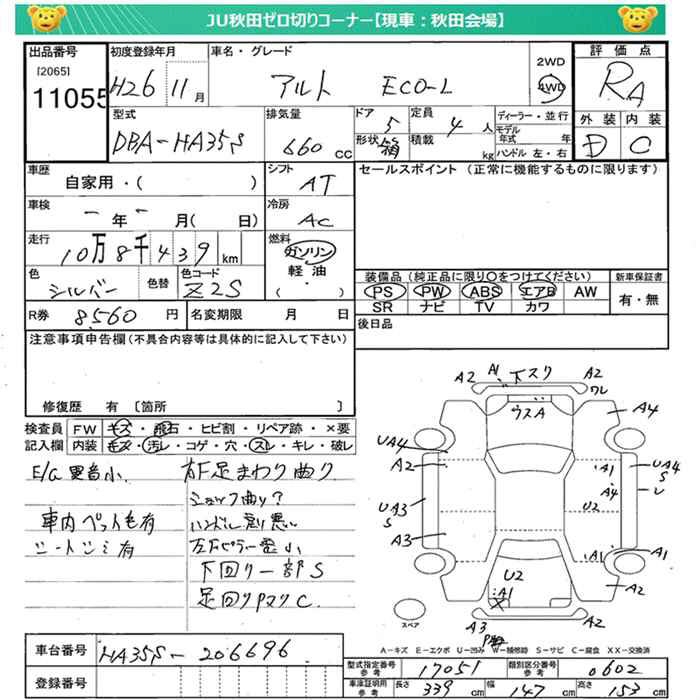 JU秋田ゼロ切りコーナー【現車：秋田会場】
出品番号
[2065]
11055
初度登録年月
H26 11月
車名・グレード
アルト ECO-L
2WD
4WD
評価点
RA
外装 内装
D C
型式
DBA-HA35S
排気量
660 cc
ドア
5
形状
箱
定員
4 人
積載
kg
ディーラー・並行
モデル年式 年
ハンドル 左・右
車歴
自家用・( )
シフト
AT
セールスポイント (正常に機能するものに限ります)
車検
年 月( 日)
冷房
AC
走行
10万8千439km
燃料
ガソリン
軽油
( )
色
シルバー
色替
色コード
Z2S
装備品 (純正品に限り○をつけてください)
PS PW ABS エアB AW
SR ナビ TV カワ
新車保証書
有・無
R券
8,560 円
名変期限 月 日
後日品
注意事項申告欄(不具合内容等は具体的に記入して下さい)
修復歴 有 〔箇所 〕
検査員 FW キズ・飛石・ヒビ割・リペア跡・×要
記入欄 内装 キズ・汚レ・コゲ・穴・スレ・キレ・破レ
E/G異音小
右F足まわり曲り
ショック曲り?
車内ペット毛有
ハンドル戻り悪い
シートシミ有
下回り一部S
足回りPマリC.
A2 A1 下スリ A2
ワレ
ウスA
A4
UA4
A2
A1
A4
UA4
S
レ
UA3
S
U2
A3
A1
A1
U2
A1
A2
A2
A3
スペア
A-キズ E-エクボ U-凹み W-補修跡 S-サビ C-腐食 XX-交換済
車台番号
HA35S-206696
登録番号
型式指定番号
参考
17051
類別区分番号
参考
0602
車庫証明用
参考
長さ 339 cm 幅 147 cm 高さ 153 cm